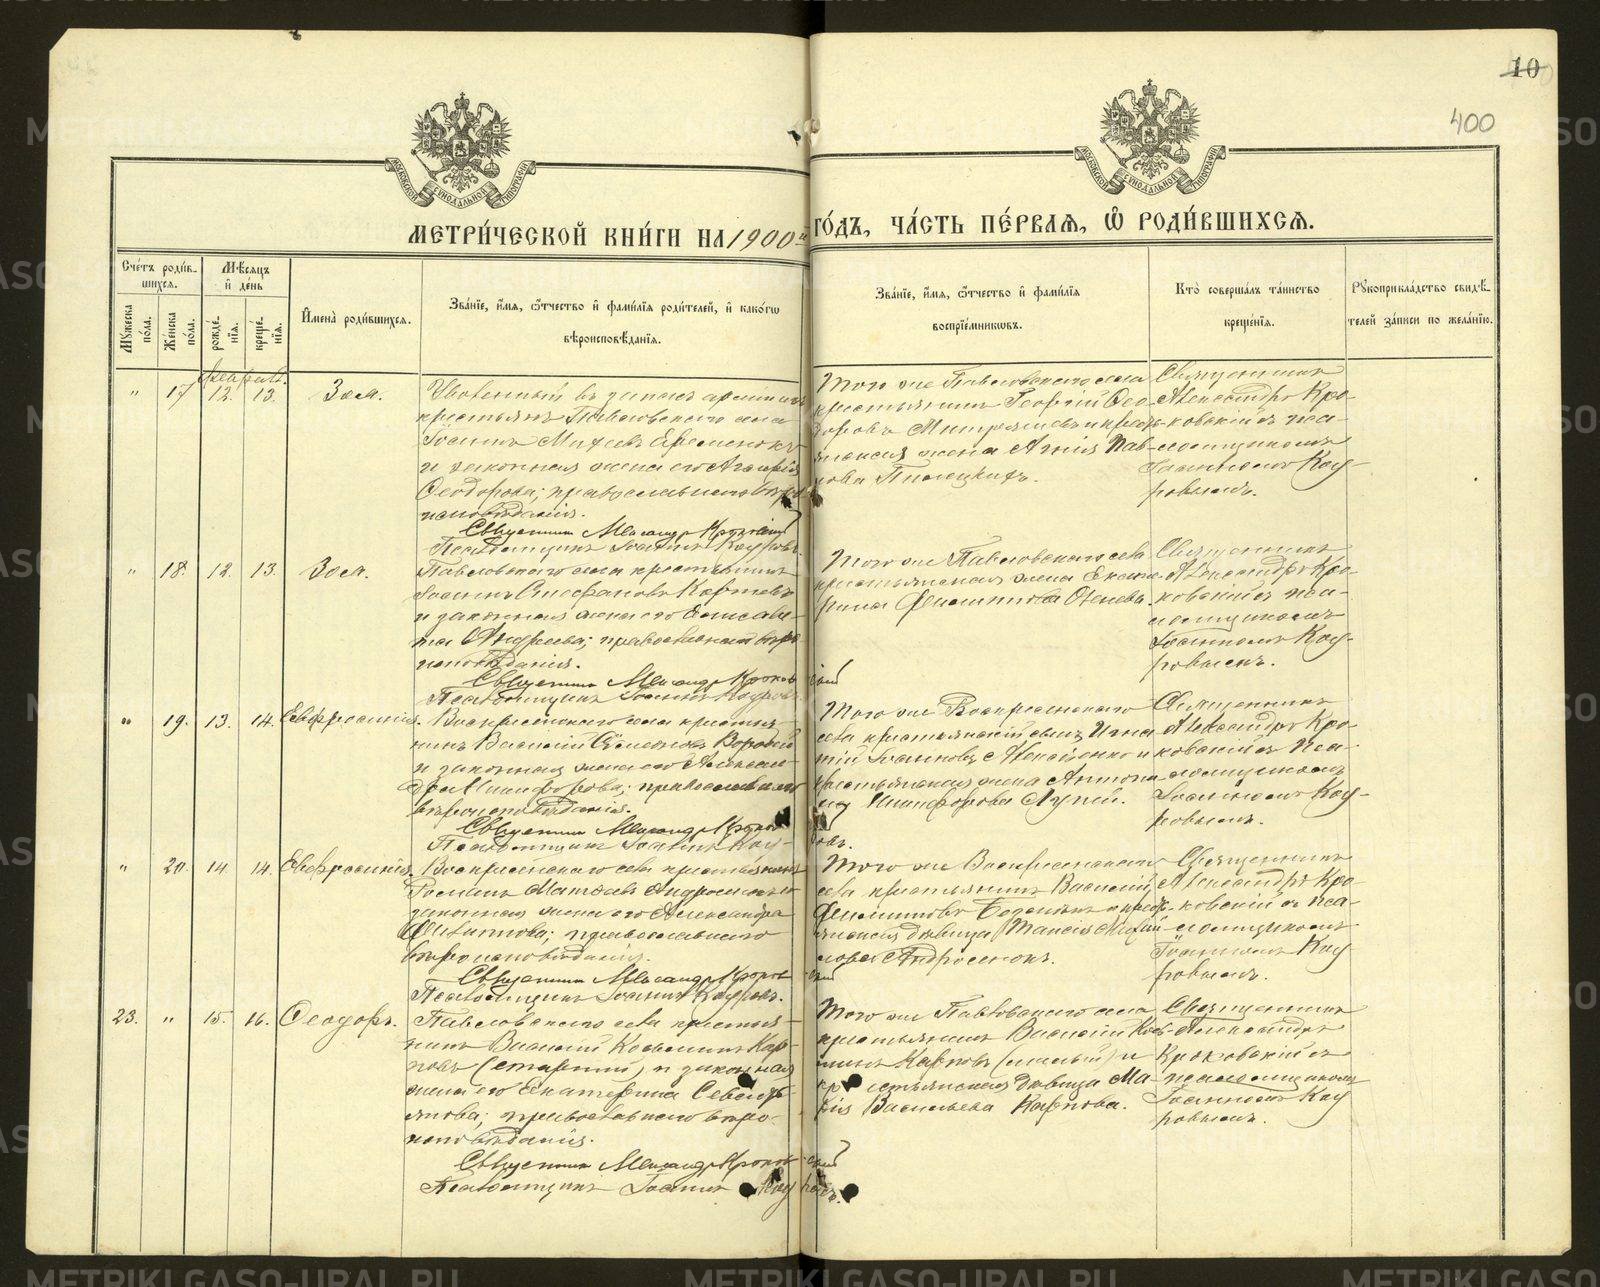 10
400
МОСКОВСКОЙ СѴНОДАЛЬНОЙ ТИПОГРАФІИ
МОСКОВСКОЙ СѴНОДАЛЬНОЙ ТИПОГРАФІИ
МЕТРИ́ЧЕСКОЙ КНИ́ГИ НА 1900й ГО́ДЪ, ЧА́СТЬ ПЕ́РВАѦ, Ѡ҆ РОДИ́ВШИХСѦ.
Сче́тъ роди́вшихсѧ.
Мѣсѧцъ и҆ де́нь
Мꙋ́жеска по́ла.
Же́нска по́ла.
рожде́нїѧ.
креще́нїѧ.
И҆мена̀ роди́вшихсѧ.
Зва́нїе, и҆́мѧ, ѻ҆́тчество и҆ фами́лїѧ роди́телей, и҆ како́гѡ вѣроисповѣ́данїѧ.
Зва́нїе, и҆́мѧ, ѻ҆́тчество и҆ фами́лїѧ воспрїе́мникѡвъ.
Кто̀ соверша́лъ та́инство креще́нїѧ.
Рꙋкоприкла́дство свидѣ́телей за́писи по жела́нїю.
февраль.
" 17 12. 13. Зоя.
Уволенный въ запасъ арміи изъ
крестьянъ Павловскаго села
Іосифъ Михеевъ
и законная жена его
Ѳеодорова; православнаго вѣро
исповѣданія.
Священникъ Александръ Кроковскій
Псаломщикъ Іоаннъ Кауровъ.
Того же Павловскаго села
крестьянинъ Георгій Ѳео-
доровъ и кресть-
янская жена Пав-
лова
Священникъ
Александръ Кро-
ковскій съ пса-
ломщикомъ
Іоанномъ Кау-
ровымъ.
" 18. 12. 13. Зоя.
Павловскаго села крестьянинъ
Іосифъ Стефановъ
и законная жена его Елисаве-
та Андреева; православнаго вѣро
исповѣданія.
Священникъ Александръ Кроковскій
Псаломщикъ Іоаннъ Кауровъ.
Того же Павловскаго села
крестьянская жена Екате-
рина Филиппова
Священникъ
Александръ Кро-
ковскій съ пса-
ломщикомъ
Іоанномъ Кау-
ровымъ.
" 19. 13. 14. Евфросинія.
Воскресенскаго села крестья-
нинъ Василій Симеоновъ
и законная жена его Алексан-
дра Никифорова; православнаго
вѣроисповѣданія.
Священникъ Александръ Кроков
Псаломщикъ Іоаннъ Кау-
ровъ.
Того же Воскресенскаго
села крестьянскій сынъ Игна-
тій Іоанновъ и
крестьянская жена Антони-
на Никифорова
Священникъ
Александръ Кро-
ковскій съ пса-
ломщикомъ
Іоанномъ Кау-
ровымъ.
" 20. 14. 14. Евфросинія.
Воскресенскаго села крестьянинъ
Романъ Матѳіевъ Андросюкъ и
законная жена его Александра
Филиппова; православнаго
вѣроисповѣданія.
Священникъ Александръ Кроков
скій
Псаломщикъ Іоаннъ Кауровъ.
Того же Воскресенскаго
села крестьянинъ Василій
Филипповъ и кресть-
янская дѣвица Таисія Михаи-
лова Андросюкъ.
Священникъ
Александръ Кро-
ковскій съ пса-
ломщикомъ
Іоанномъ Кау
ровымъ.
23. " 15. 16. Ѳеодоръ.
Павловскаго села крестья-
нинъ Василій Космипъ Кар-
повъ (старшій) и законная
жена его Екатерина Севастья-
нова; православнаго вѣро-
исповѣданія.
Священникъ Александръ Кроков-
скій
Псаломщикъ Іоаннъ Кауровъ.
Того же Павловскаго села
крестьянинъ Василій Кось-
минъ Карповъ (малый) и
крестьянская дѣвица Ма-
рія Васильева Карпова.
Священникъ
Александръ
Кроковскій съ
псаломщикомъ
Іоанномъ Кау
ровымъ.